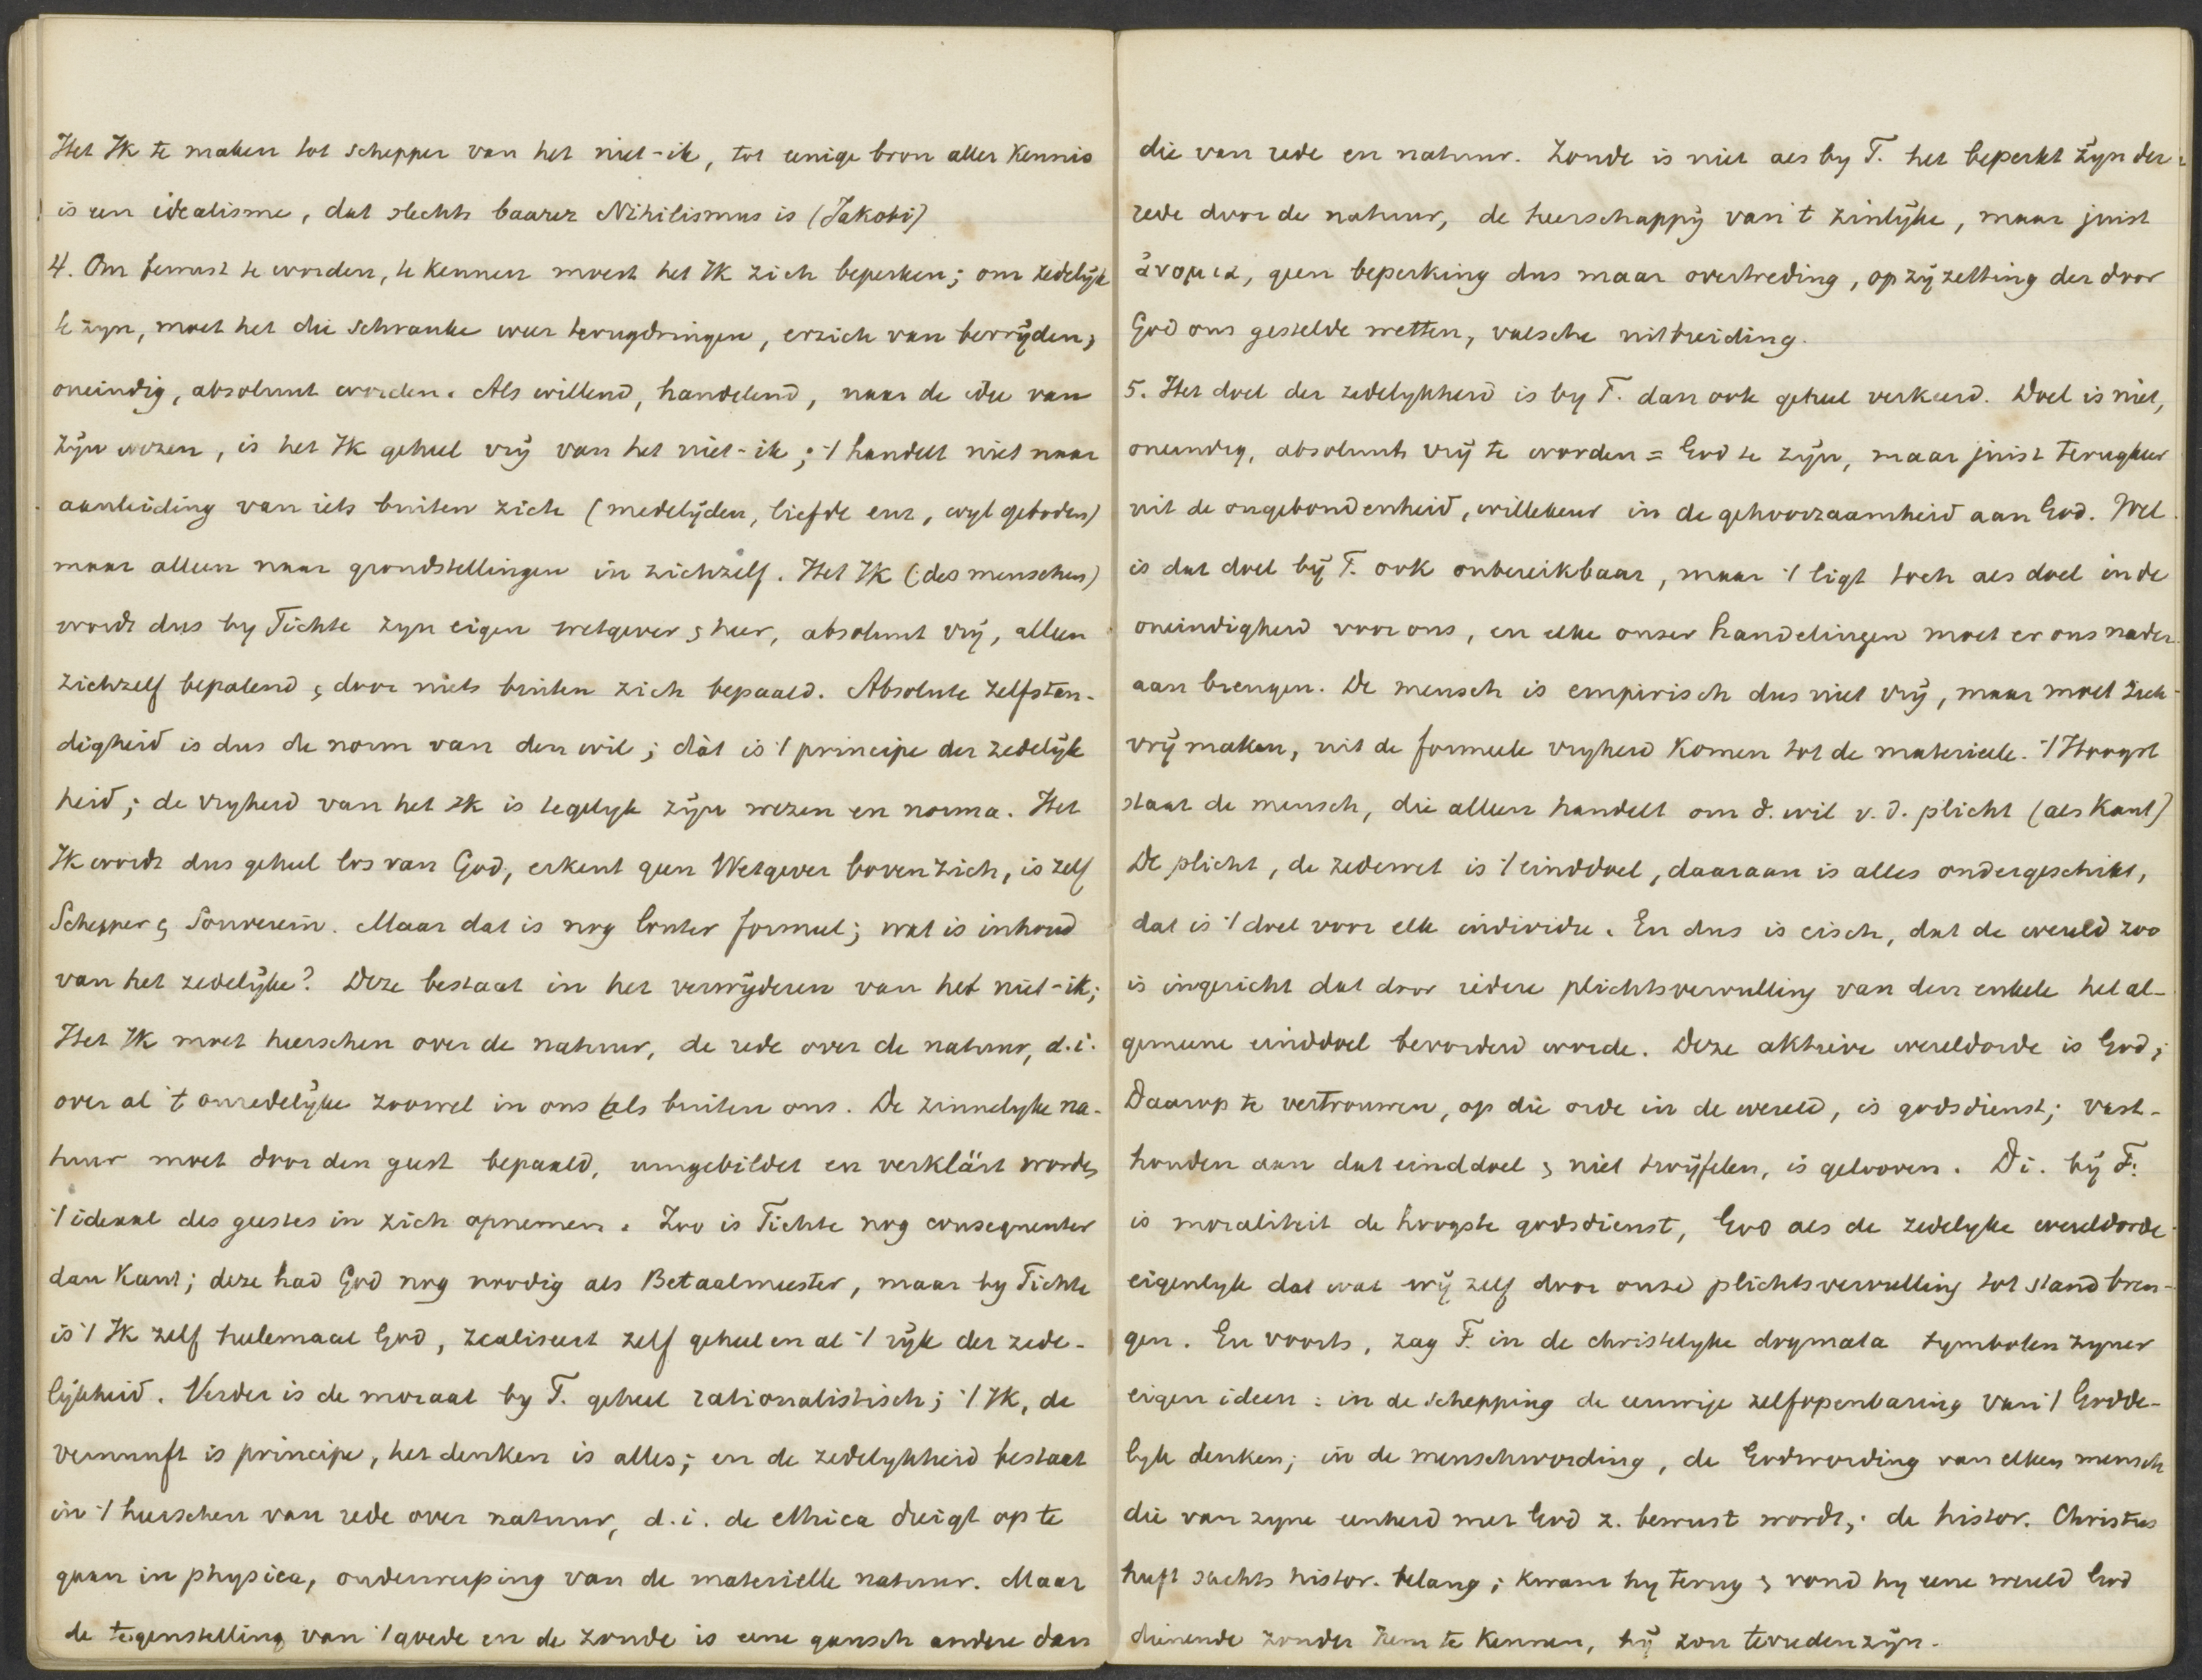 Het Ik te maken tot schepper van het niet-ik, tot eenige bron aller kennis
is een idealisme, dat slechts baarer Nihilismus is (Jakobi)
4. Om bewust te worden, te kennen moest het Ik zich beperken; om zedelijk
te zijn, moet het die schranke weer terugdringen, er zich van bevrijden,
oneindig, absoluut worden. Als willend, handelend, naar de idee van
zijn wezen, is het Ik geheel vrij van het niet-ik; 't handelt niet naar
aanleiding van iets buiten zich (medelijden, liefde enz, wyl geboden)
maar alleen naar grondstellingen in zichzelf. Het Ik (des menschen)
wordt dus by Fichte zyn eigen wetgever & heer, absoluut vrij, alleen
zichzelf bepalend & door niets buiten zich bepaald. Absolute zelfstan-
digheid is dus de norm van den wil; dàt is 't principe der zedelijk
heid; de vryheid van het Ik is tegelyk zijn wezen en norma. Het
Ik wordt dus geheel los van God, erkent geen Wetgever boven zich, is zelf
Schepper & Souverein. Maar dat is nog louter formeel; wat is inhoud
van het zedelijke? Deze bestaat in het verwijderen van het niet-ik;
Het Ik moet heerschen over de natuur, de rede over de natuur, d.i.
over al 't onredelijke zoowel in ons als buiten ons. De zinnelyke na-
tuur moet door den geest bepaald, umgebildet en verklärt worden
't ideaal des geestes in zich opnemen. Zoo is Fichte nog consequenter
dan Kant; deze had God nog noodig als Betaalmeester, maar by Fichte
is 't Ik zelf heelemaal God, realiseert zelf geheel en al 't rijk der zede-
lijkheid. Verder is de moraal by F. geheel rationalistisch; 't Ik, de
vernunft is principe, het denken is alles; en de zedelykheid bestaat
in 't heerschen van rede over natuur, d.i. de ethica dreigt op te
gaan in physica, onderwerping van de materielle natuur. Maar
de tegenstelling van 't goede en de zonde is eene gansch andere dan
die van rede en natuur. Zonde is niet als by F. het beperkt zijn der
rede door de natuur, de heerschappij van 't zinlijke, maar juist
ἀνομια, geen beperking dus maar overtreding, op zij zetting der door
God ons gestelde wetten, valsche uitbreiding.
5. Het doel der zedelykheid is by F. dan ook geheel verkeerd. Doel is niet,
oneindig, absoluut vrij te worden = God te zijn, maar juist terugkeer
uit de ongebondenheid, willekeur in de gehoorzaamheid aan God. Wel
is dat doel bij F. ook onbereikbaar, maar 't ligt toch als doel in de
oneindigheid voor ons, en elke onzer handelingen moet er ons nader
aan brengen. De mensch is empirisch dus niet vrij, maar moet zich
vrij maken, uit de formeele vryheid komen tot de materieele. 't Hoogst
staat de mensch, die alleen handelt om d. wil v. d. plicht (als Kant)
De plicht, de zedewet is 't einddoel, daaraan is alles ondergeschikt,
dat is 't doel voor elk individu. En dus is eisch, dat de wereld zoo
is ingericht dat door iedere plichtsvervulling van den enkele het al-
gemeene einddoel bevorderd worde. Deze aktieve wereldorde is God;
Daarop te vertrouwen, op die orde in de wereld, is godsdienst; vast-
houden aan dat einddoel & niet twijfelen, is gelooven. D.i. bij F.
is moraliteit de hoogste godsdienst, God als de zedelyke wereldorde
eigenlyk dat wat wij zelf door onze plichtsvervulling tot stand bren-
gen. En voorts, zag F. in de christelyke dogmata symbolen zyner
eigen ideen: in de schepping de eeuwige zelfopenbaring van 't Godde-
lyk denken; in de menschwording, de Godwording van elken mensch
die van zyne eenheid met God z. bewust wordt; de histor. Christus
heeft slechts histor. belang; kwam hy terug & vond hy eene wereld God
dienende zonder hem te kennen, hij zou tevreden zijn.